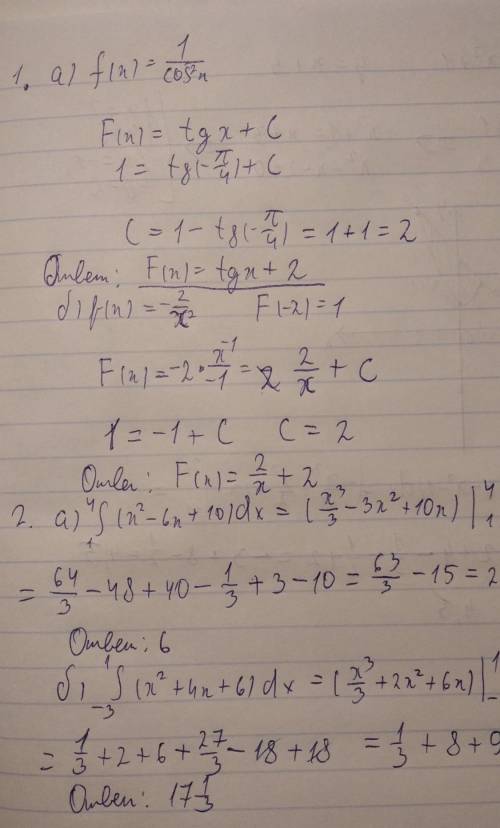 1. а) f(x) = 1/cos²x
F(x) = tg x + C
1 = tg(-π/4) + C
C = 1 - tg(-π/4) = 1 + 1 = 2
Ответ: F(x) = tg x + 2
б) f(x) = -2/x² F(-2) = 1
F(x) = -2 · x⁻¹/-1 = 2/x + C
1 = -1 + C C = 2
Ответ: F(x) = 2/x + 2
2. а) ∫₁⁴ (x² - 6x + 10) dx = (x³/3 - 3x² + 10x) |₁⁴
= 64/3 - 48 + 40 - 1/3 + 3 - 10 = 63/3 - 15 = 2
Ответ: 6
б) ∫₋₃¹ (x² + 4x + 6) dx = (x³/3 + 2x² + 6x) |¹₋
= 1/3 + 2 + 6 + 27/3 - 18 + 18 = 1/3 + 8 + 9
Ответ: 17 1/3